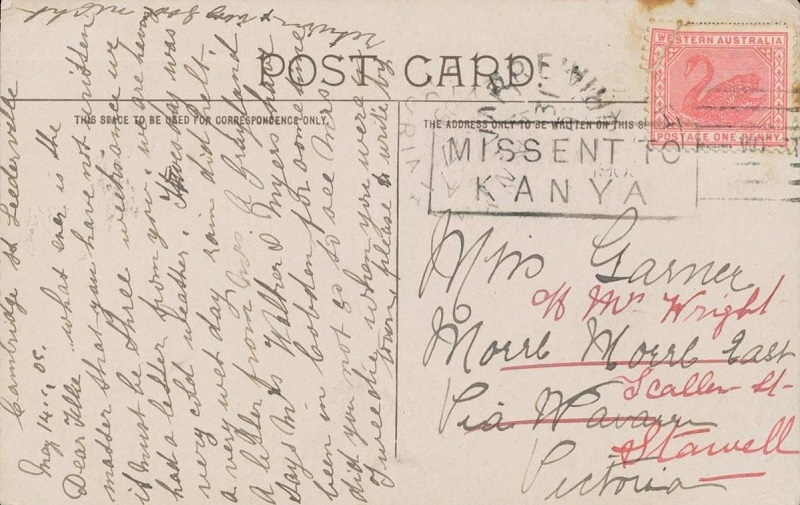 POST CARD
THIS SPACE TO BE USED FOR CORRESPONDENCE ONLY.
Cambridge St Leederville
May 14th, 05.
Dear Tillie what ever is the
matter that you have not written
it must be three weeks since we
had a letter from you. we are having
very cold weather. Thuesday was
a very wet day rain did pelt.
a letter from Mrs. Grayland
says Mrs Walter & Myers have
been in Cobden for some time
did you not go to see Mrs
Tweedie when you were in
town, please to write by
return & very good night
THE ADDRESS ONLY TO BE WRITTEN ON THIS S
WESTERN AUSTRALIA
POSTAGE ONE PENNY
MISSENT TO
KANYA
Miss Garner
c/o Mrs Wright
Morrl Morrl East
Scallen St
Via Navarre
Stawell
Victoria